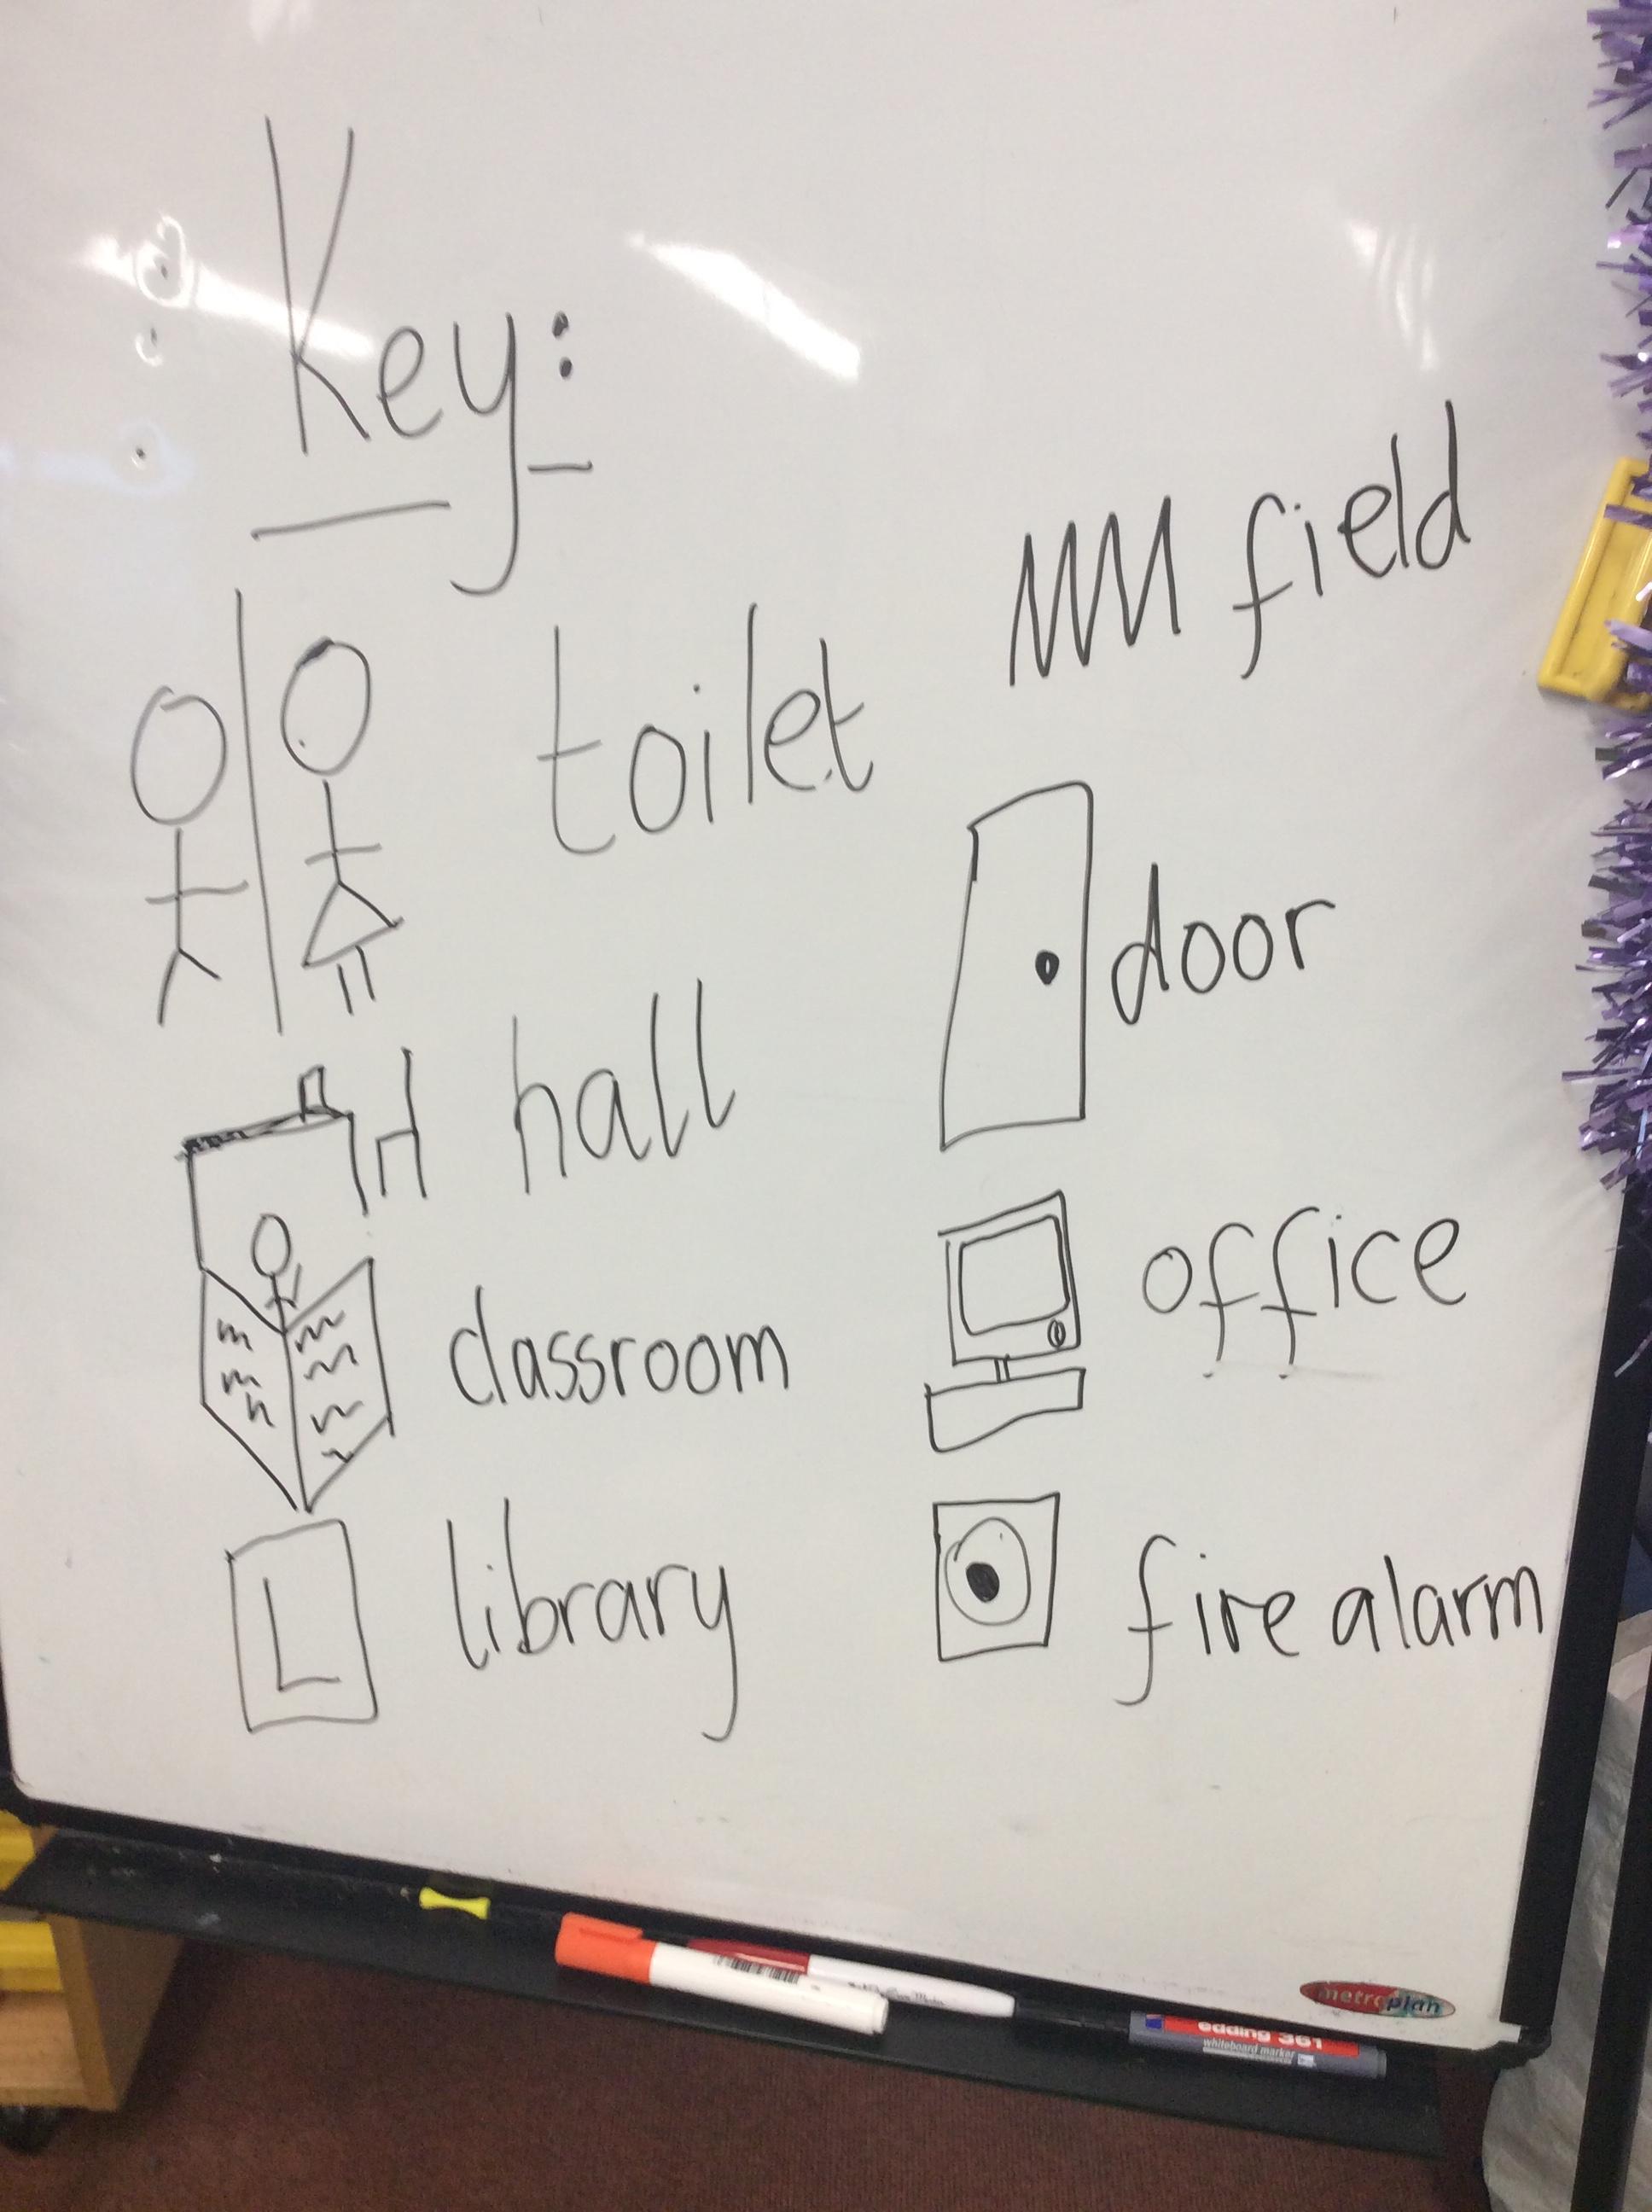 Key:
toilet
hall
classroom
L library
field
door
office
fire alarm
metroplan
edding 361
whiteboard marker